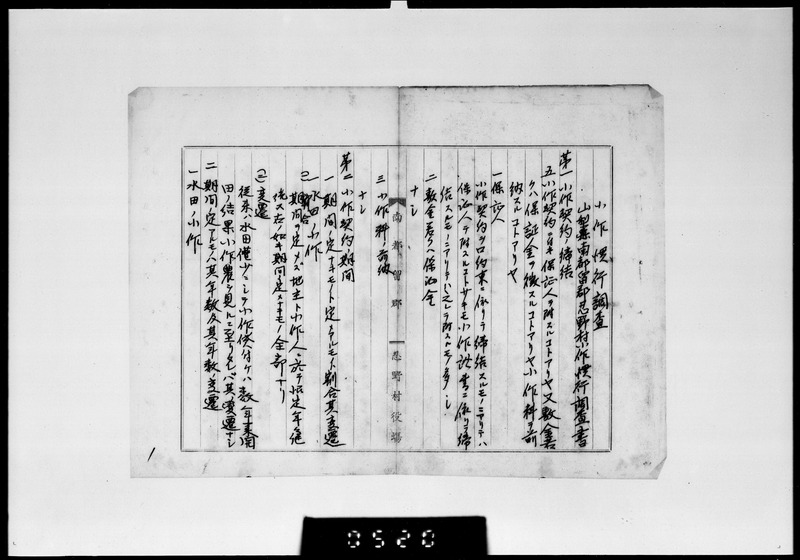 小作慣行調査
山梨県南都留郡忍野村小作慣行調査書
第一 小作契約ノ締結
五 小作契約ニ保証人ヲ附スルコトアリヤ又敷金若
クハ保証金ヲ徴スルコトアリヤ小作料ヲ前
納スルコトアリヤ
一 保証人
小作契約ガ口約束ニ依リテ締結スルモノニアリテハ
保証人ヲ附スルコトナキモ小作証書ニ依リテ締
結スルモノニアリテハ之レヲ附スルモノ多シ
二 敷金若クハ保証金
ナシ
三 小作料ノ前納
ナシ
南都留郡 忍野村役場
第二 小作契約ノ期間
一 期間ノ定ナキモノト定メアルモノトノ割合其変遷
一 水田ノ小作
(1) 割合
期間ヲ定メズ地主ト小作人ニ於テ
統ス右ノ如キ期間ヲ定メナキモノ全部ナリ
(2) 変遷
従来ハ水田僅少ニシテ小作受付ケハ数年来開
田ノ結果小作農ヲ見ルニ至リタレバ其変遷ナシ
二 期間ノ定アルモノハ其年数及其年数ノ変遷
一 水田ノ小作
1
0520